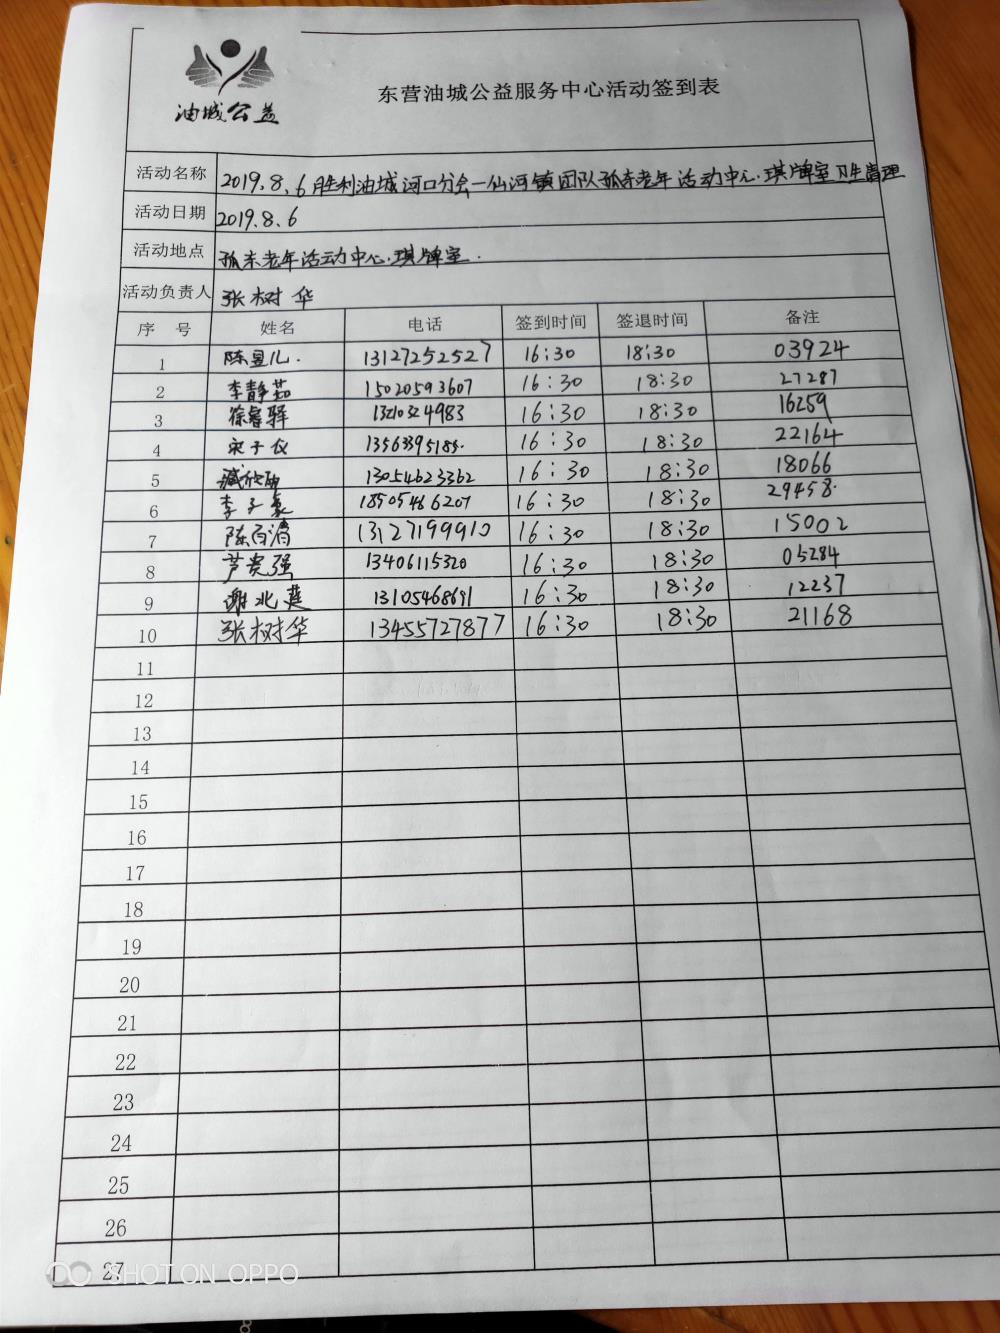 油城公益
东营油城公益服务中心活动签到表
活动名称 2019.8.6胜利油城河口分会一仙河镇团队孤东老年活动中心.琪牌室卫生清理
活动日期 2019.8.6
活动地点 孤东老年活动中心.琪牌室.
活动负责人 张树华
序号 姓名 电话 签到时间 签退时间 备注
1 陈昱儿. 13127252527 16:30 18:30 03924
2 李静茹 15020593607 16:30 18:30 27287
3 徐睿驿 13210324983 16:30 18:30 16259
4 宋子仪 16:30 18:30 22164
5 臧 13054623362 16:30 18:30 18066
6 李子豪 18505466207 16:30 18:30 29458.
7 陈百涛 13127199910 16:30 18:30 15002
8 芦贵强 13406115320 16:30 18:30 05284
9 谢北 13105468691 16:30 18:30 12237
10 张树华 13455727877 16:30 18:30 21168
11
12
13
14
15
16
17
18
19
20
21
22
23
24
25
26
27
SHOT ON OPPO